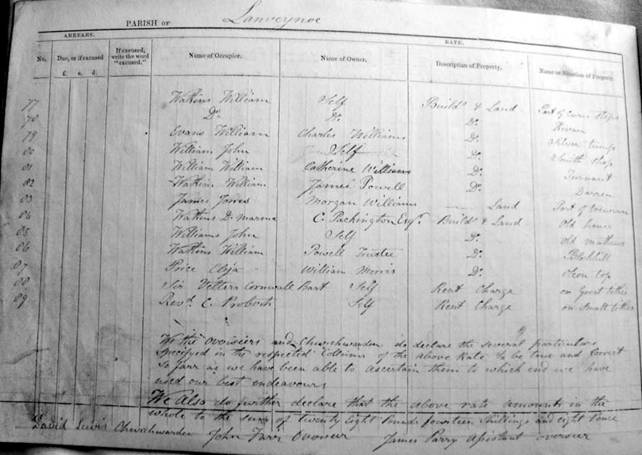 PARISH OF Lanveynoe
ARREARS. RATE.
No. Due, or if excused If excused, write the word "excused." Name of Occupier. Name of Owner. Description of Property. Name or Situation of Property.
£. s. d.
77 Watkins William Self Build.s & Land Part of
78 Do Do Do
79 Evans William Charles Williams Do
80 William John Self Do Smith Shop
81 William William Catherine Williams Do
82 Watkins William James Powell Do Darren
83 James James Morgan William Land Part of
84 Watkins C. Packington Esqr. Build.s & Land Old house
85 Williams John Self Do old
86 Watkins William Powell Trustee Do
87 Price Elija William Morris Do
88 Sir Cornwall Bart Self Rent Charge on Great tithe
89 Revd. C. Probert Self Rent Charge on Small tithe
We the overseers and Churchwarden do declare the several particulars
Specified in the respected Collumns of the above Rate to be true and Correct
So farr as we have been able to ascertain them to which end we have
used our best endeavours
We Also do further declare that the above rate amounts in the
whole to the sum of twenty Eight Pounds fourteen Shillings and eight Pence
David Lewis Churchwarden John Farr Overseer James Parry Asistant overseer